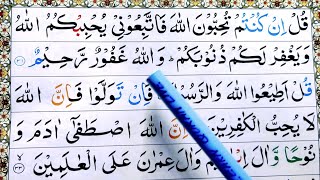 قُلْ اِنْ كُنْتُمْ تُحِبُّوْنَ اللّٰهَ فَاتَّبِعُوْنِيْ يُحْبِبْكُمُ اللّٰهُ
وَيَغْفِرْ لَكُمْ ذُنُوْبَكُمْ ۗ وَاللّٰهُ غَفُوْرٌ رَّحِيْمٌ ﴿۳۱﴾
قُلْ اَطِيْعُوا اللّٰهَ وَالرَّسُوْلَ ۚ فَاِنْ تَوَلَّوْا فَاِنَّ اللّٰهَ
لَا يُحِبُّ الْكٰفِرِيْنَ ﴿۳۲﴾ اِنَّ اللّٰهَ اصْطَفٰٓى اٰدَمَ وَ
نُوْحًا وَّاٰلَ اِبْرٰهِيْمَ وَاٰلَ عِمْرٰنَ عَلَى الْعٰلَمِيْنَ ﴿۳۳﴾